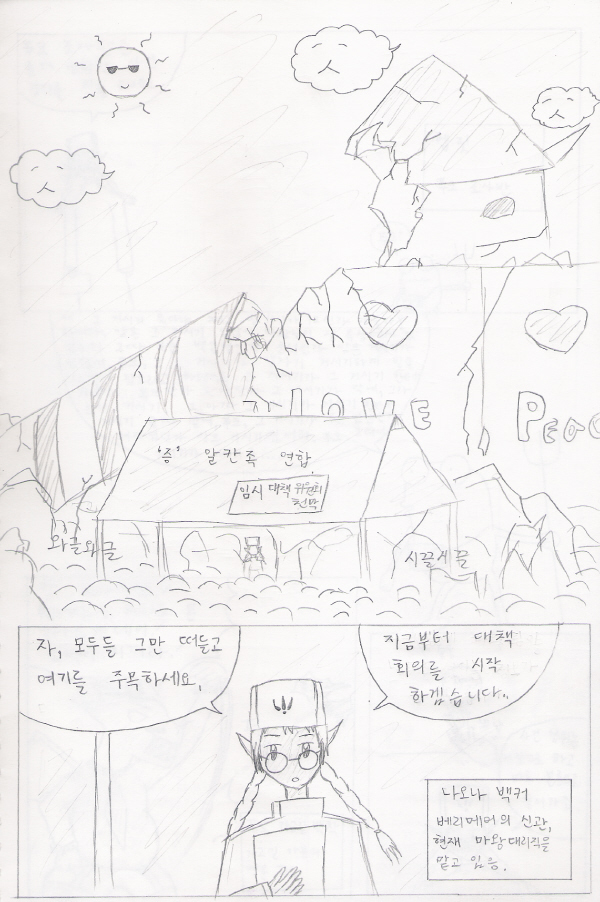 LOVE
'증' 알칸족 연합.
임시 대책 위원회
천막
와글와글
시끌시끌
자, 모두들 그만 떠들고
여기를 주목하세요.
지금부터 대책
회의를 시작
하겠습니다..
나오나 백커
베리메머의 신관,
현재 마왕대리직을
맡고 있음.